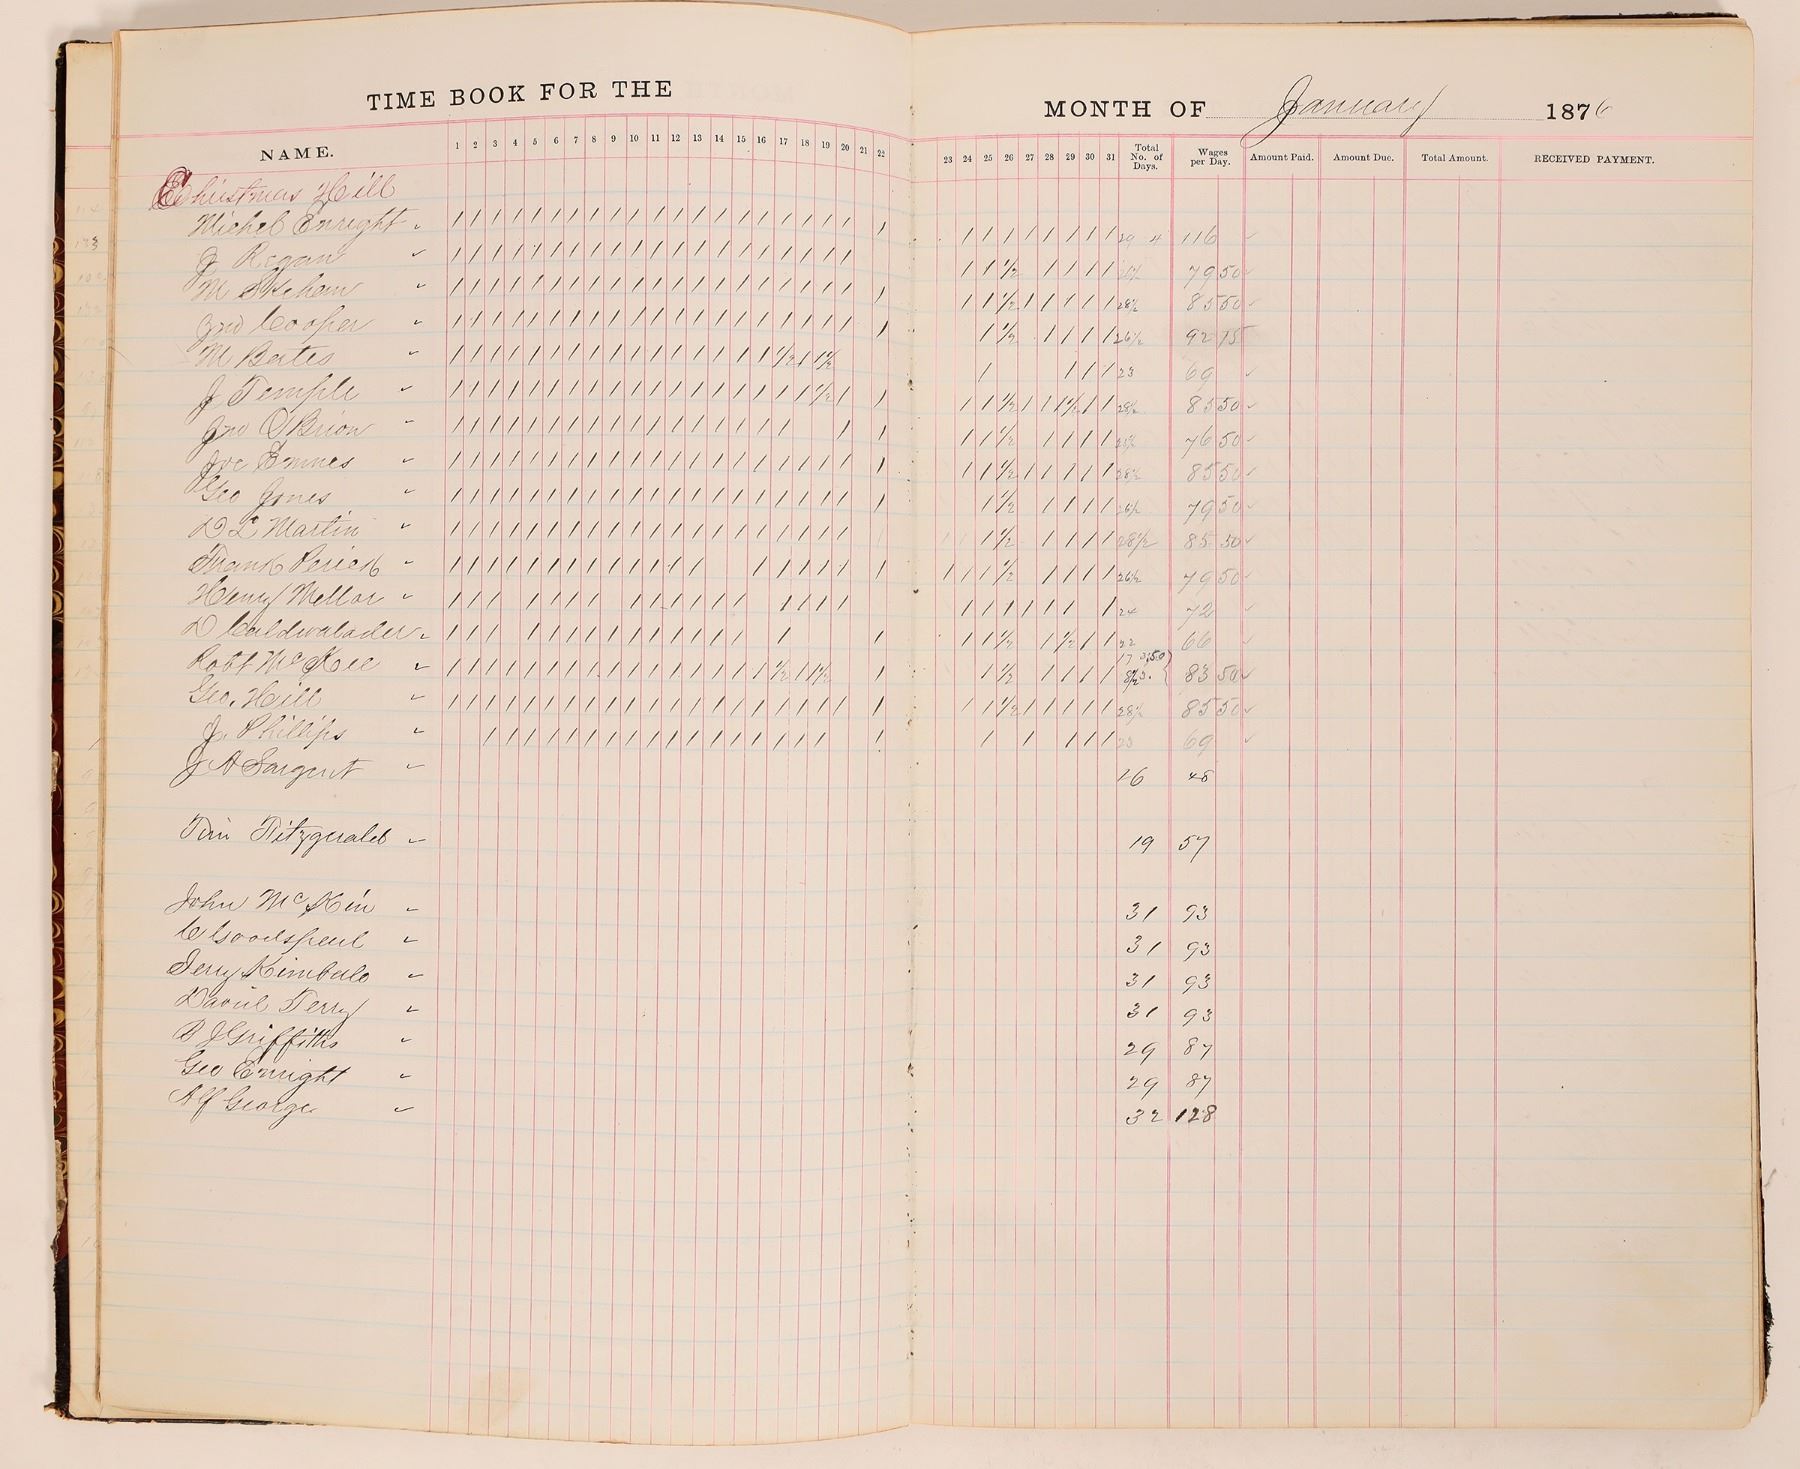 TIME BOOK FOR THE MONTH OF January 1876
NAME. 1 2 3 4 5 6 7 8 9 10 11 12 13 14 15 16 17 18 19 20 21 22 23 24 25 26 27 28 29 30 31 Total No. of Days. Wages per Day. Amount Paid. Amount Due. Total Amount. RECEIVED PAYMENT.
Christmas Hill
Michel Enright 29 4 116
J Regan 79 50
M 28½ 85 50
Jno Cooper 26½ 92 75
M Bates 23 69
J Temple 28½ 85 50
Jno O'Brion 25½ 76 50
Joe Emnes 28½ 85 50
Geo Jones 26½ 79 50
D L Martin 28½ 85 50
Frank 26½ 79 50
Henry Mellor 24 72
D Caldwalader 22 66
Robt McKee 17 3.50 8½ 3. 83 50
Geo. Hill 28½ 85 50
J. Phillips 23 69
J A Sargent 16 48
Tim Fitzgerald 19 57
John McKin 31 93
C Goodspeed 31 93
Jerry Kimball 31 93
David Terry 31 93
D J Griffiths 29 87
Geo Enright 29 87
Alf George 32 128